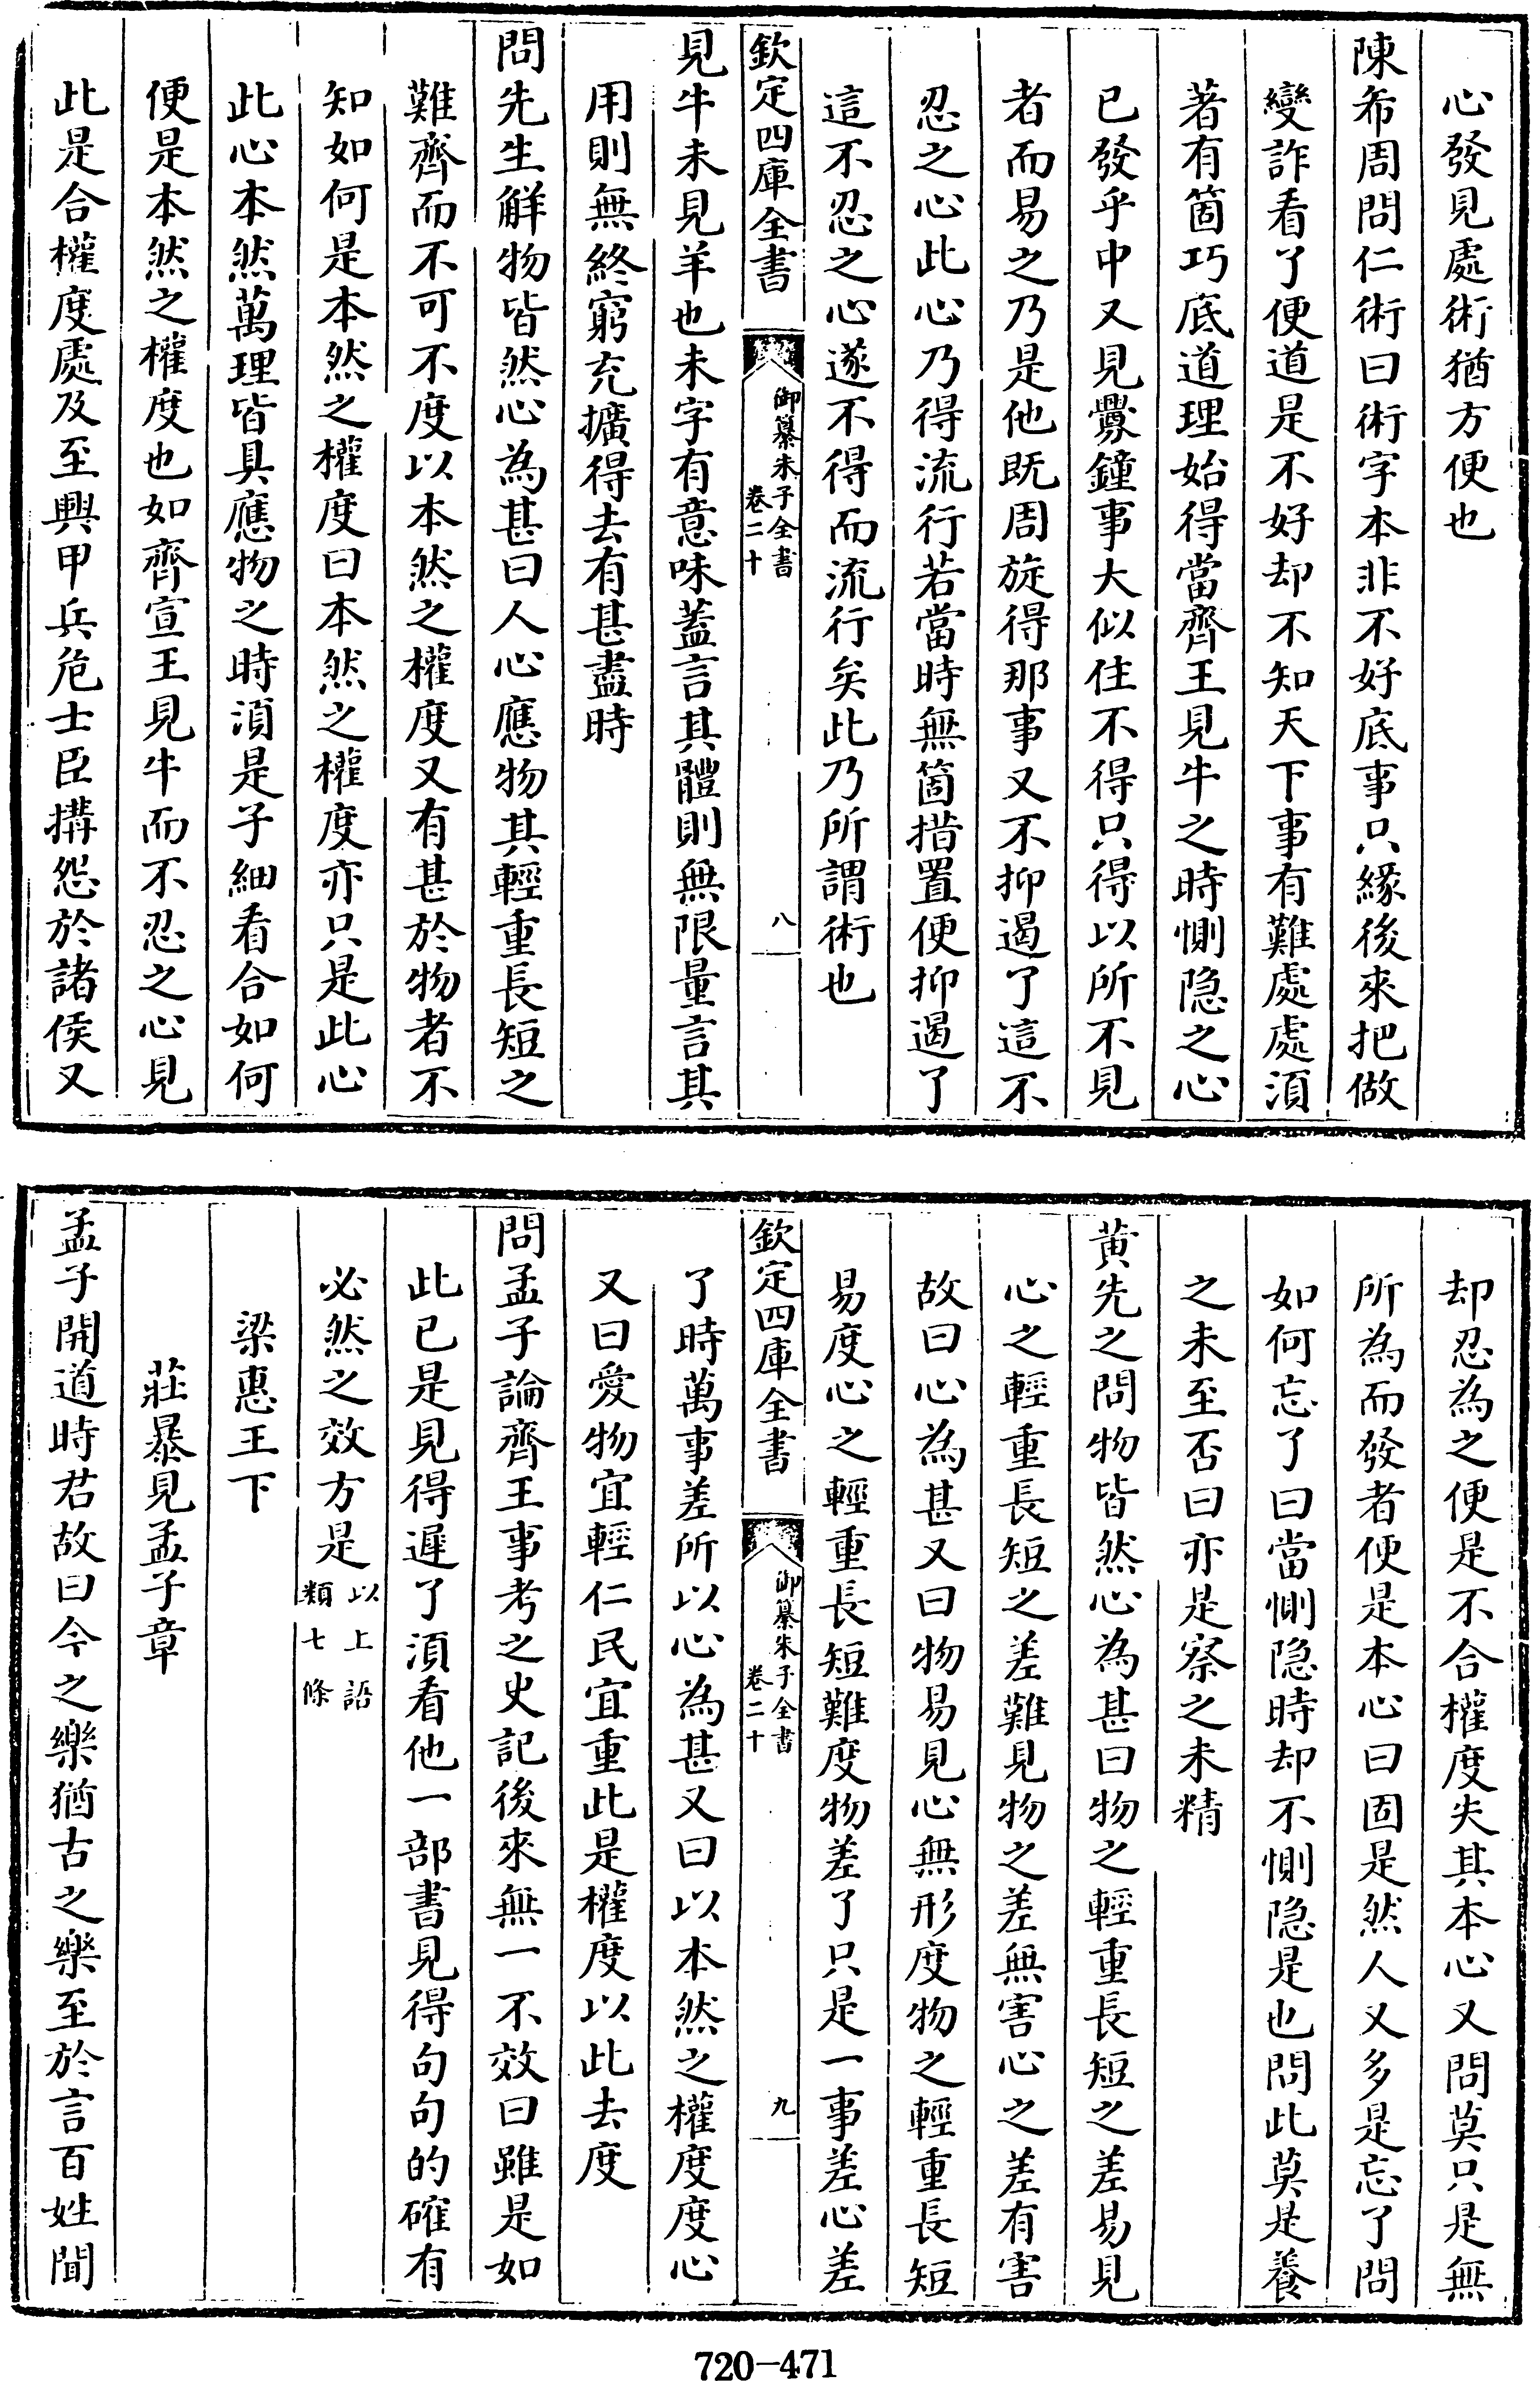 心發見處術猶方便也
陳希周問仁術曰術字本非不好底事只緣後來把做
變詐看了便道是不好却不知天下事有難處處須
著有箇巧底道理始得當齊王見牛之時惻隠之心
已發乎中又見釁鐘事大似住不得只得以所不見
者而易之乃是他既周旋得那事又不抑遏了這不
忍之心此心乃得流行若當時無箇措置便抑遏了
這不忍之心遂不得而流行矣此乃所謂術也
欽定四庫全書
御纂朱子全書
卷二十
八
見牛未見羊也未字有意味蓋言其體則無限量言其
用則無終窮充擴得去有甚盡時
問先生觧物皆然心為甚曰人心應物其輕重長短之
難齊而不可不度以本然之權度又有甚於物者不
知如何是本然之權度曰本然之權度亦只是此心
此心本然萬理皆具應物之時須是子細看合如何
便是本然之權度也如齊宣王見牛而不忍之心見
此是合權度處及至興甲兵危士臣搆怨於諸侯又
却忍為之便是不合權度失其本心又問莫只是無
所為而發者便是本心曰固是然人又多是忘了問
如何忘了曰當惻隠時却不惻隠是也問此莫是養
之未至否曰亦是察之未精
黄先之問物皆然心為甚曰物之輕重長短之差易見
心之輕重長短之差難見物之差無害心之差有害
故曰心為甚又曰物易見心無形度物之輕重長短
易度心之輕重長短難度物差了只是一事差心差
欽定四庫全書
御纂朱子全書
卷二十
九
了時萬事差所以心為甚又曰以本然之權度度心
又曰愛物宜輕仁民宜重此是權度以此去度
問孟子論齊王事考之史記後來無一不效曰雖是如
此已是見得遲了須看他一部書見得句句的確有
必然之效方是以上語類七條
梁惠王下
莊暴見孟子章
孟子開道時君故曰今之樂猶古之樂至於言百姓聞
720-471